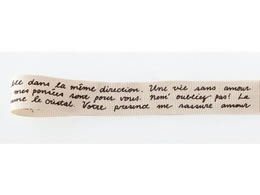 dans la même direction. Une vie sans amour
mes pensées sont pour vous. Nem' oubliez pas! La
le cristal. Votre presence me rassure amour